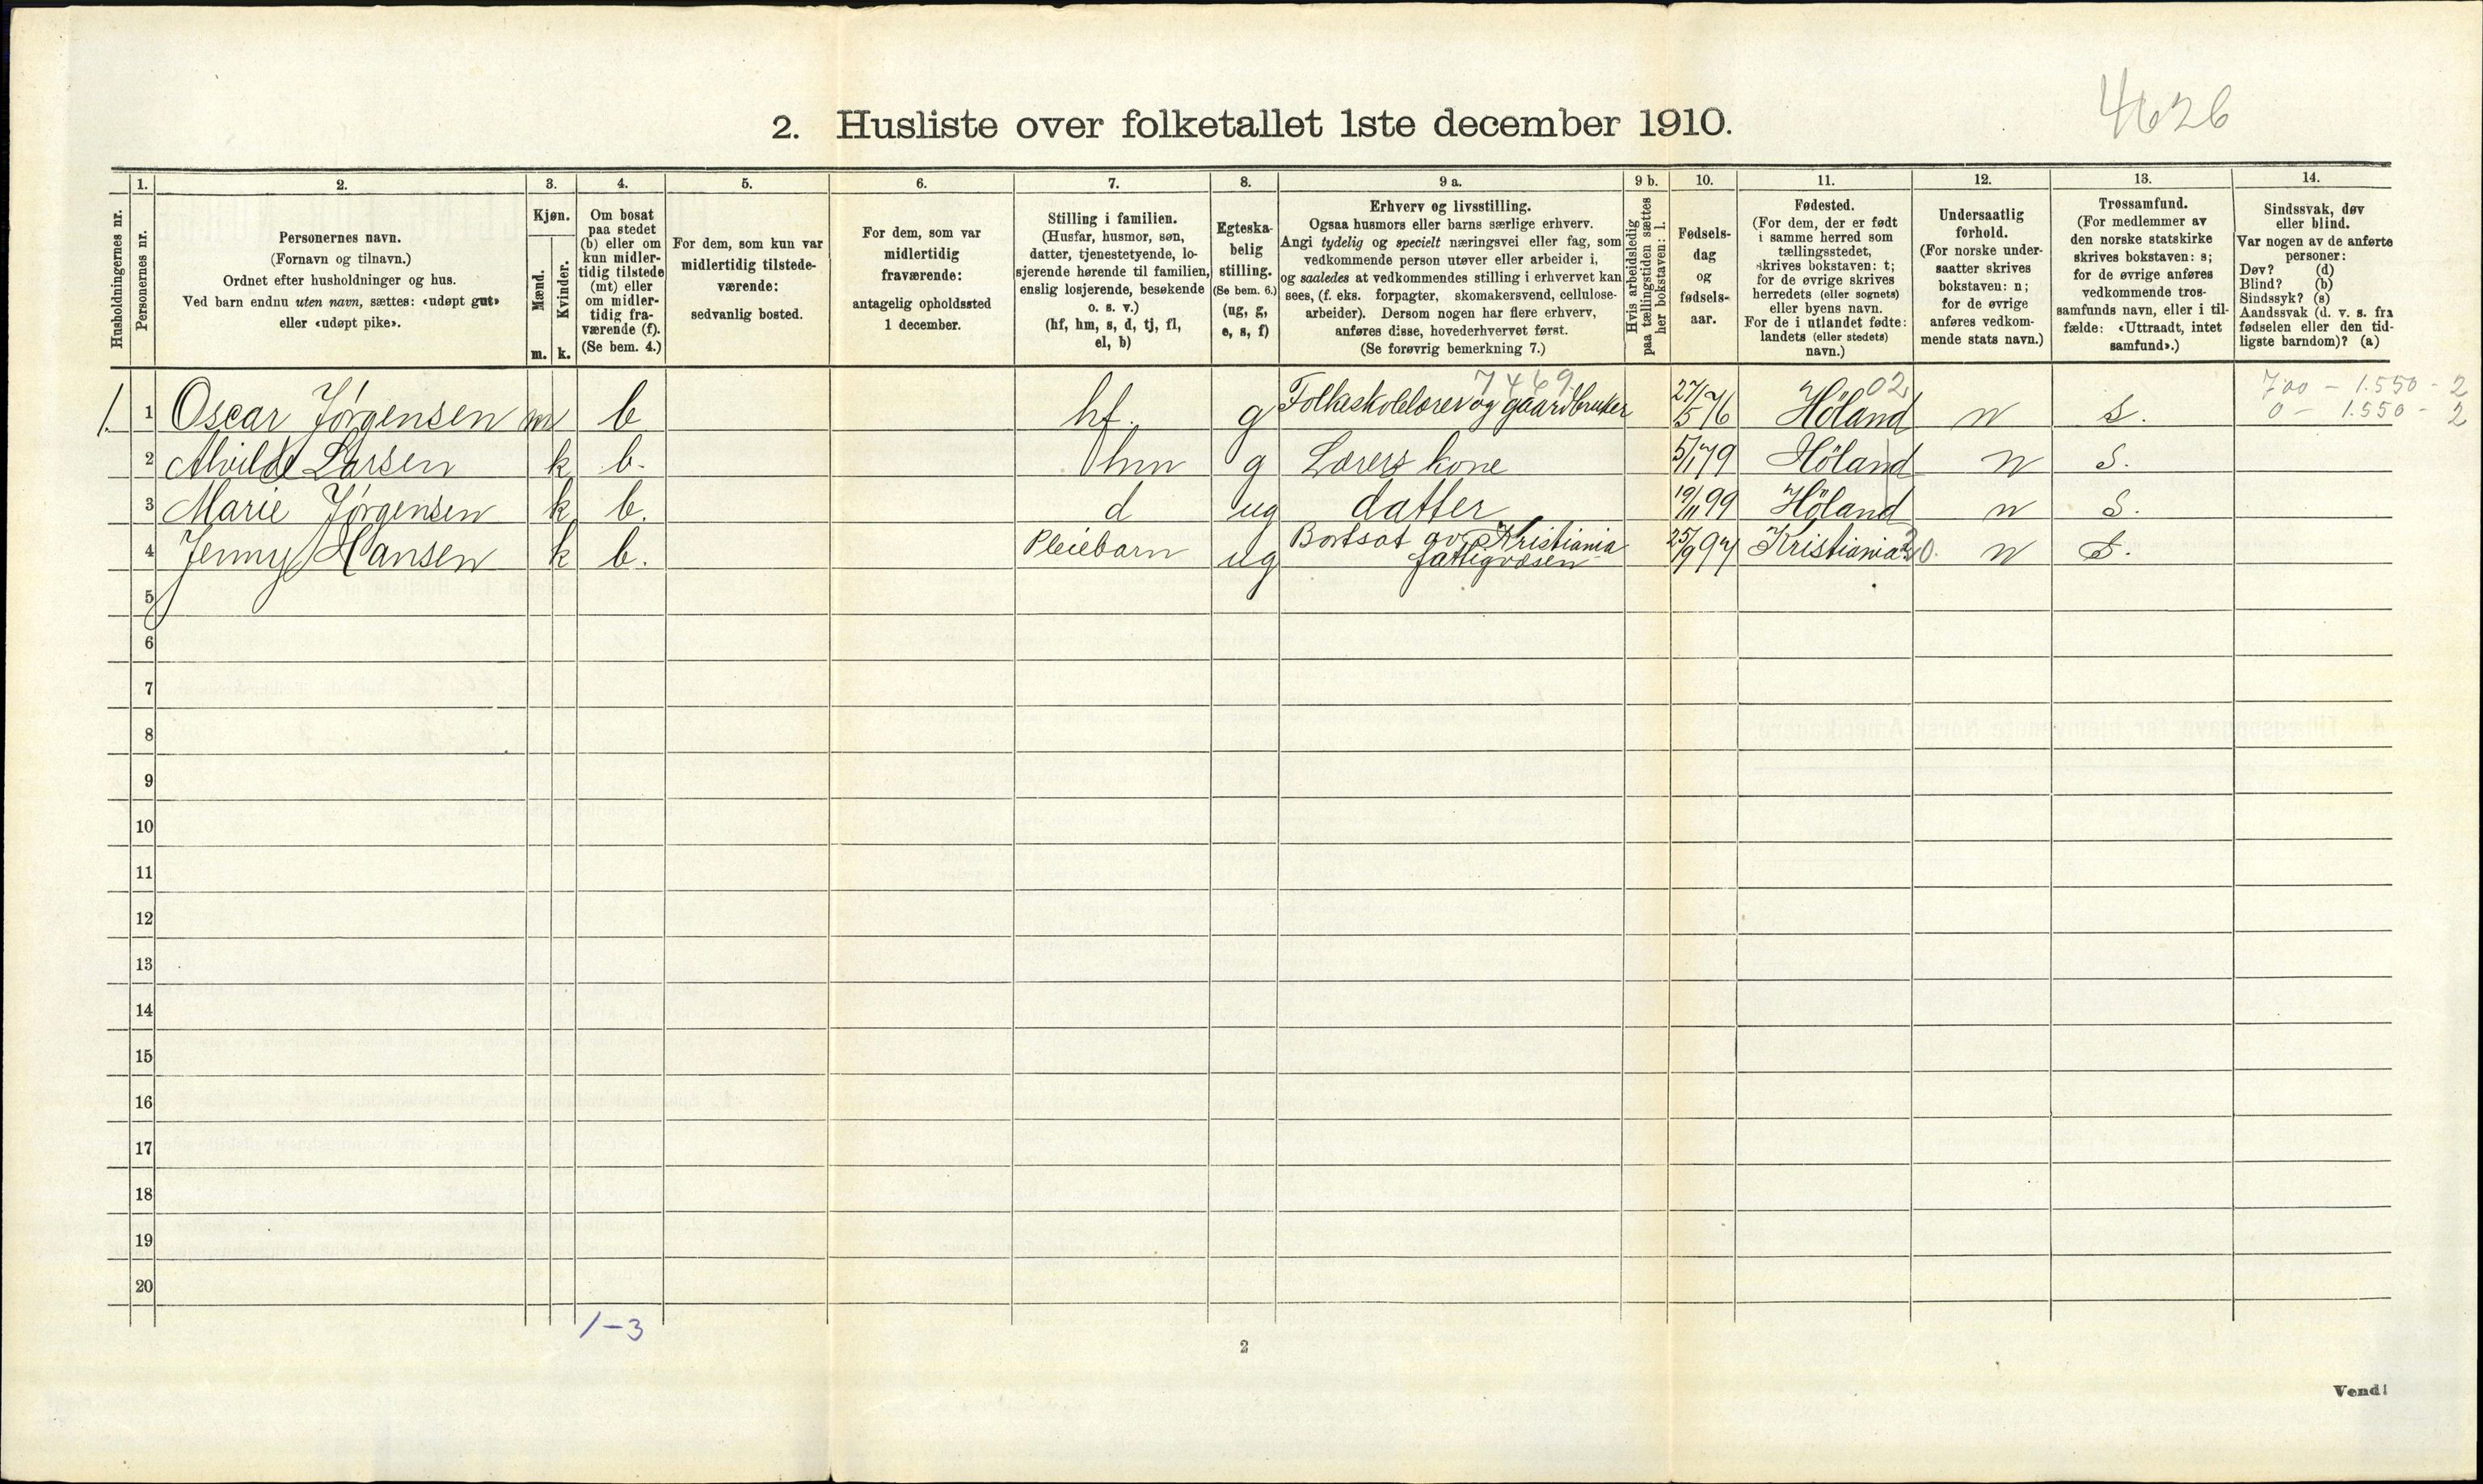 4626
2. Husliste over folketallet 1ste december 1910.
Husholdningernes nr.
1.
Personernes nr.
2.
Personernes navn.
(Fornavn og tilnavn.)
Ordnet efter husholdninger og hus.
Ved barn endnu uten navn, sættes: «udøpt gut»
eller «udøpt pike».
3.
Kjøn.
Mænd.
Kvinder.
m. k.
4.
Om bosat
paa stedet
(b) eller om
kun midler-
tidig tilstede
(mt) eller
om midler-
tidig fra-
værende (f).
(Se bem. 4.)
5.
For dem, som kun var
midlertidig tilstede-
værende:
sedvanlig bosted.
6.
For dem, som var
midlertidig
fraværende:
antagelig opholdssted
1 december.
7.
Stilling i familien.
(Husfar, husmor, søn,
datter, tjenestetyende, lo-
sjerende hørende til familien,
enslig losjerende, besøkende
o. s. v.)
(hf, hm, s, d, tj, fl,
el, b)
8.
Egteska-
belig
stilling.
(Se bem. 6.)
(ug, g,
e, s, f)
9 a.
Erhverv og livsstilling.
Ogsaa husmors eller barns særlige erhverv.
Angi tydelig og specielt næringsvei eller fag, som
vedkommende person utøver eller arbeider i,
og saaledes at vedkommendes stilling i erhvervet kan
sees, (f. eks. forpagter, skomakersvend, cellulose-
arbeider). Dersom nogen har flere erhverv,
anføres disse, hovederhvervet først.
(Se forøvrig bemerkning 7.)
9 b.
Hvis arbeidsledig
paa tællingstiden sættes
her bokstaven: l.
10.
Fødsels-
dag
og
fødsels-
aar.
11.
Fødested.
(For dem, der er født
i samme herred som
tællingsstedet,
skrives bokstaven: t;
for de øvrige skrives
herredets (eller sognets)
eller byens navn.
For de i utlandet fødte:
landets (eller stedets)
navn.)
12.
Undersaatlig
forhold.
(For norske under-
saatter skrives
bokstaven: n;
for de øvrige
anføres vedkom-
mende stats navn.)
13.
Trossamfund.
(For medlemmer av
den norske statskirke
skrives bokstaven: s;
for de øvrige anføres
vedkommende tros-
samfunds navn, eller i til-
fælde: «Uttraadt, intet
samfund».)
14.
Sindssvak, døv
eller blind.
Var nogen av de anførte
personer:
Døv? (d)
Blind? (b)
Sindssyk? (s)
Aandssvak (d. v. s. fra
fødselen eller den tid-
ligste barndom)? (a)
7469 02 700 - 1.550 - 2
0 - 1.550 - 2
1. 1 Oscar Jørgensen m b hf. g Folkeskolelærer og gaardbruker 27/5 76 Høland n s.
2 Alvilde Larsen k b. hm g Lærers kone 5/1 79 Høland n S.
3 Marie Jørgensen k b. d ug datter 19/11 99 Høland n S.
4 Jenny Hansen k b. Pleiebarn ug Bortsat av Kristiania
fattigvæsen 25/9 97 Kristiania n S.
5
6
7
8
9
10
11
12
13
14
15
16
17
18
19
20
1-3
2
Vend!